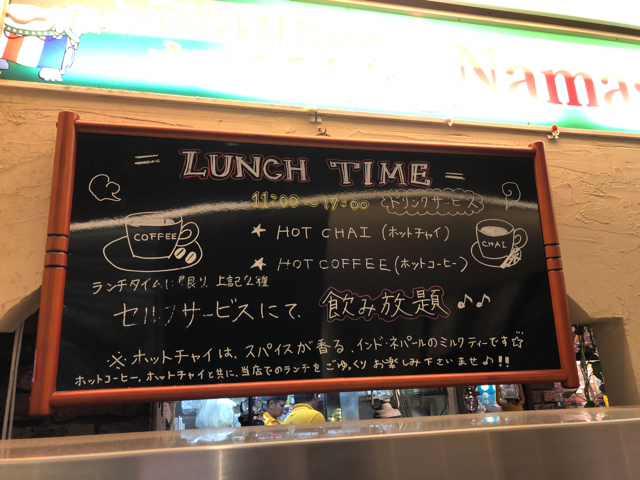 Nama
= LUNCH TIME =
11:00〜17:00 ドリンクサービス
COFFEE
★ HOT CHAI (ホットチャイ)
CHAI
★ HOT COFFEE (ホットコーヒー)
ランチタイムに限り、上記2種
セルフサービスにて、飲み放題♪♪
※ホットチャイは、スパイスが香る、インド・ネパールのミルクティーです☆
ホットコーヒー、ホットチャイと共に、当店でのランチをごゆっくりお楽しみ下さいませ♪!!